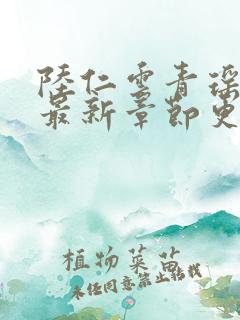 陸仁雲青瑶
最新章節更
植物菜苗
未經同意禁止轉載